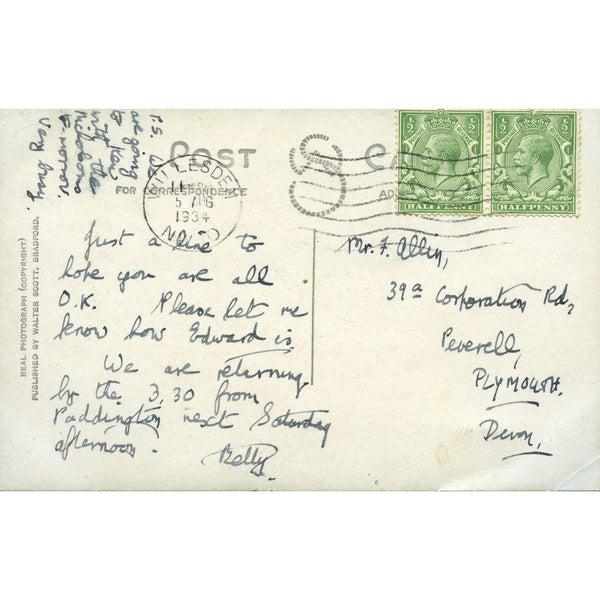 P.S. We
are going
to Kew
in the
tomorrow.
Very busy
POST CARD
FOR CORRESPONDENCE
WILLESDEN
5 AUG
1934
½ ½
HALFPENNY
½ ½
HALFPENNY
Just a line to
hope you are all
O.K. Please let me
know how Edward is
We are returning
by the 3.30 from
Paddington next Saturday
afternoon.
Betty.
Mr. F. Allin,
39a Corporation Rd,
Peverell,
PLYMOUTH.
Devon,
REAL PHOTOGRAPH (COPYRIGHT)
PUBLISHED BY WALTER SCOTT, BRADFORD.